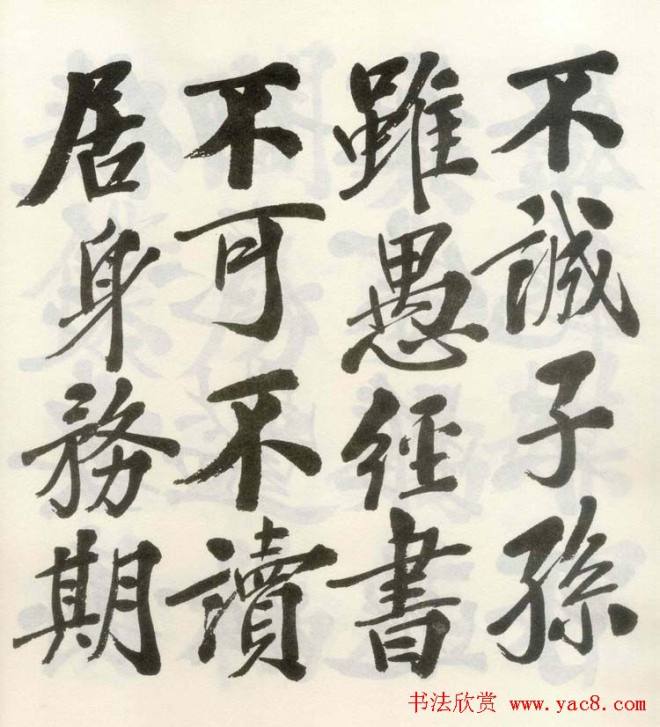 不誠子孫
雖愚經書
不可不讀
居身務期
书法欣赏 www.yac8.com